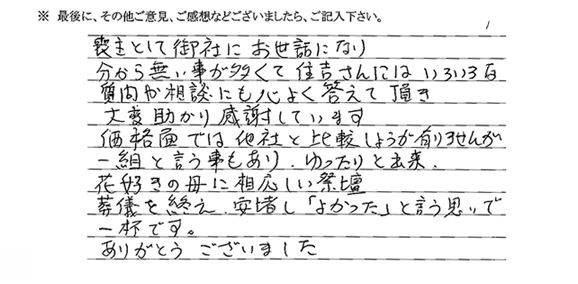 ※ 最後に、その他ご意見、ご感想などございましたら、ご記入下さい。
喪主として御社にお世話になり
分から無い事が多くて住吉さんにはいろいろな
質問や相談にも心よく答えて頂き
大変助かり感謝しています
価格面では他社と比較しようが有りませんが
一組と言う事もあり、ゆったりと出来、
花好きの母に相応しい祭壇
葬儀を終え、安堵し「よかった」と言う思いで
一杯です。
ありがとうございました